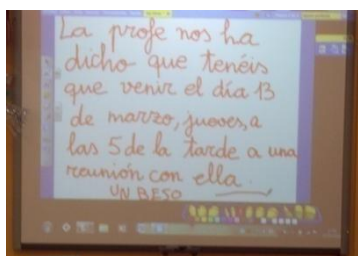 La profe nos ha
dicho que tenéis
que venir el día 13
de marzo, jueves, a
las 5 de la tarde a una
reunión con ella.
UN BESO